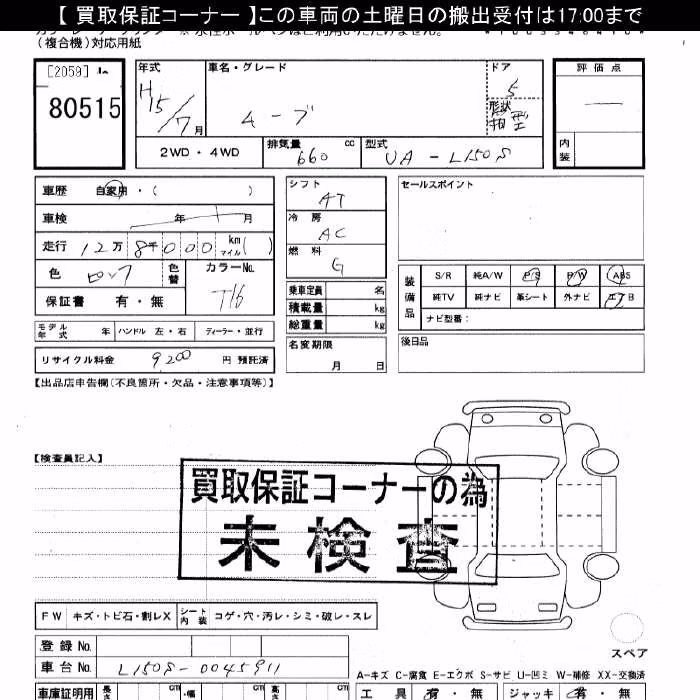 【 買取保証コーナー 】この車両の土曜日の搬出受付は17:00まで
(複合機)対応用紙
[2059]
80515
年式 H15/7月
車名・グレード ムーブ
ドア 5
形状 箱型
評価点
内装
2WD・4WD
排気量 660 cc
型式 UA-L150S
車歴 自家用・( )
車検 年 月
走行 12万8千000 km マイル( )
色
色替
カラーNo. T16
保証書 有・無
シフト AT
冷房 AC
燃料 G
乗車定員 名
積載量 kg
総重量 kg
セールスポイント
装備品
S/R 純A/W P/S P/W ABS
純TV 純ナビ 革シート 外ナビ エアB
ナビ型番:
モデル年式 年 ハンドル 左・右 ディーラー・並行
リサイクル料金 9,200 円 預託済
名変期限 月 日
後日品
【出品店申告欄(不良箇所・欠品・注意事項等)】
【検査員記入】
買取保証コーナーの為
未検査
FW キズ・トビ石・割レX シート内装 コゲ・穴・汚レ・シミ・破レ・スレ
スペア
登録 No.
車台 No. L150S-0045911
A-キズ C-腐食 E-エクボ S-サビ U-凹ミ W-補修 XX-交換済
車庫証明用 長さ cm 幅 cm 高さ cm
工具 有・無 ジャッキ 有・無